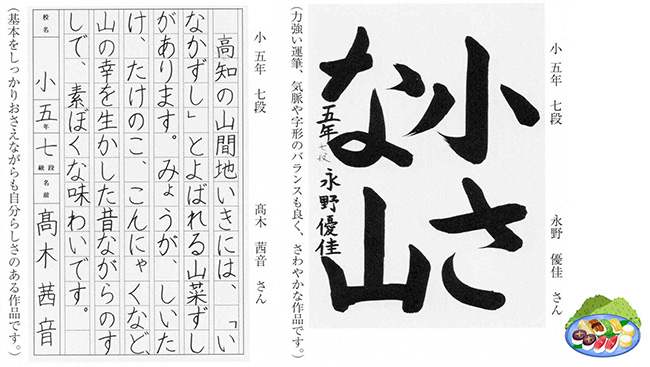 小 五年 七段 永野 優佳 さん
小さ
な山
五年 七段 永野優佳
（力強い運筆、気脈や字形のバランスも良く、さわやかな作品です。）
小 五年 七段 髙木 茜音 さん
高知の山間地いきには、「い
なかずし」とよばれる山菜ずし
があります。みょうが、しいた
け、たけのこ、こんにゃくなど、
山の幸を生かした昔ながらのす
しで、素ぼくな味わいです。
校名 小五年七段級 名前 髙木茜音
（基本をしっかりおさえながらも自分らしさのある作品です。）